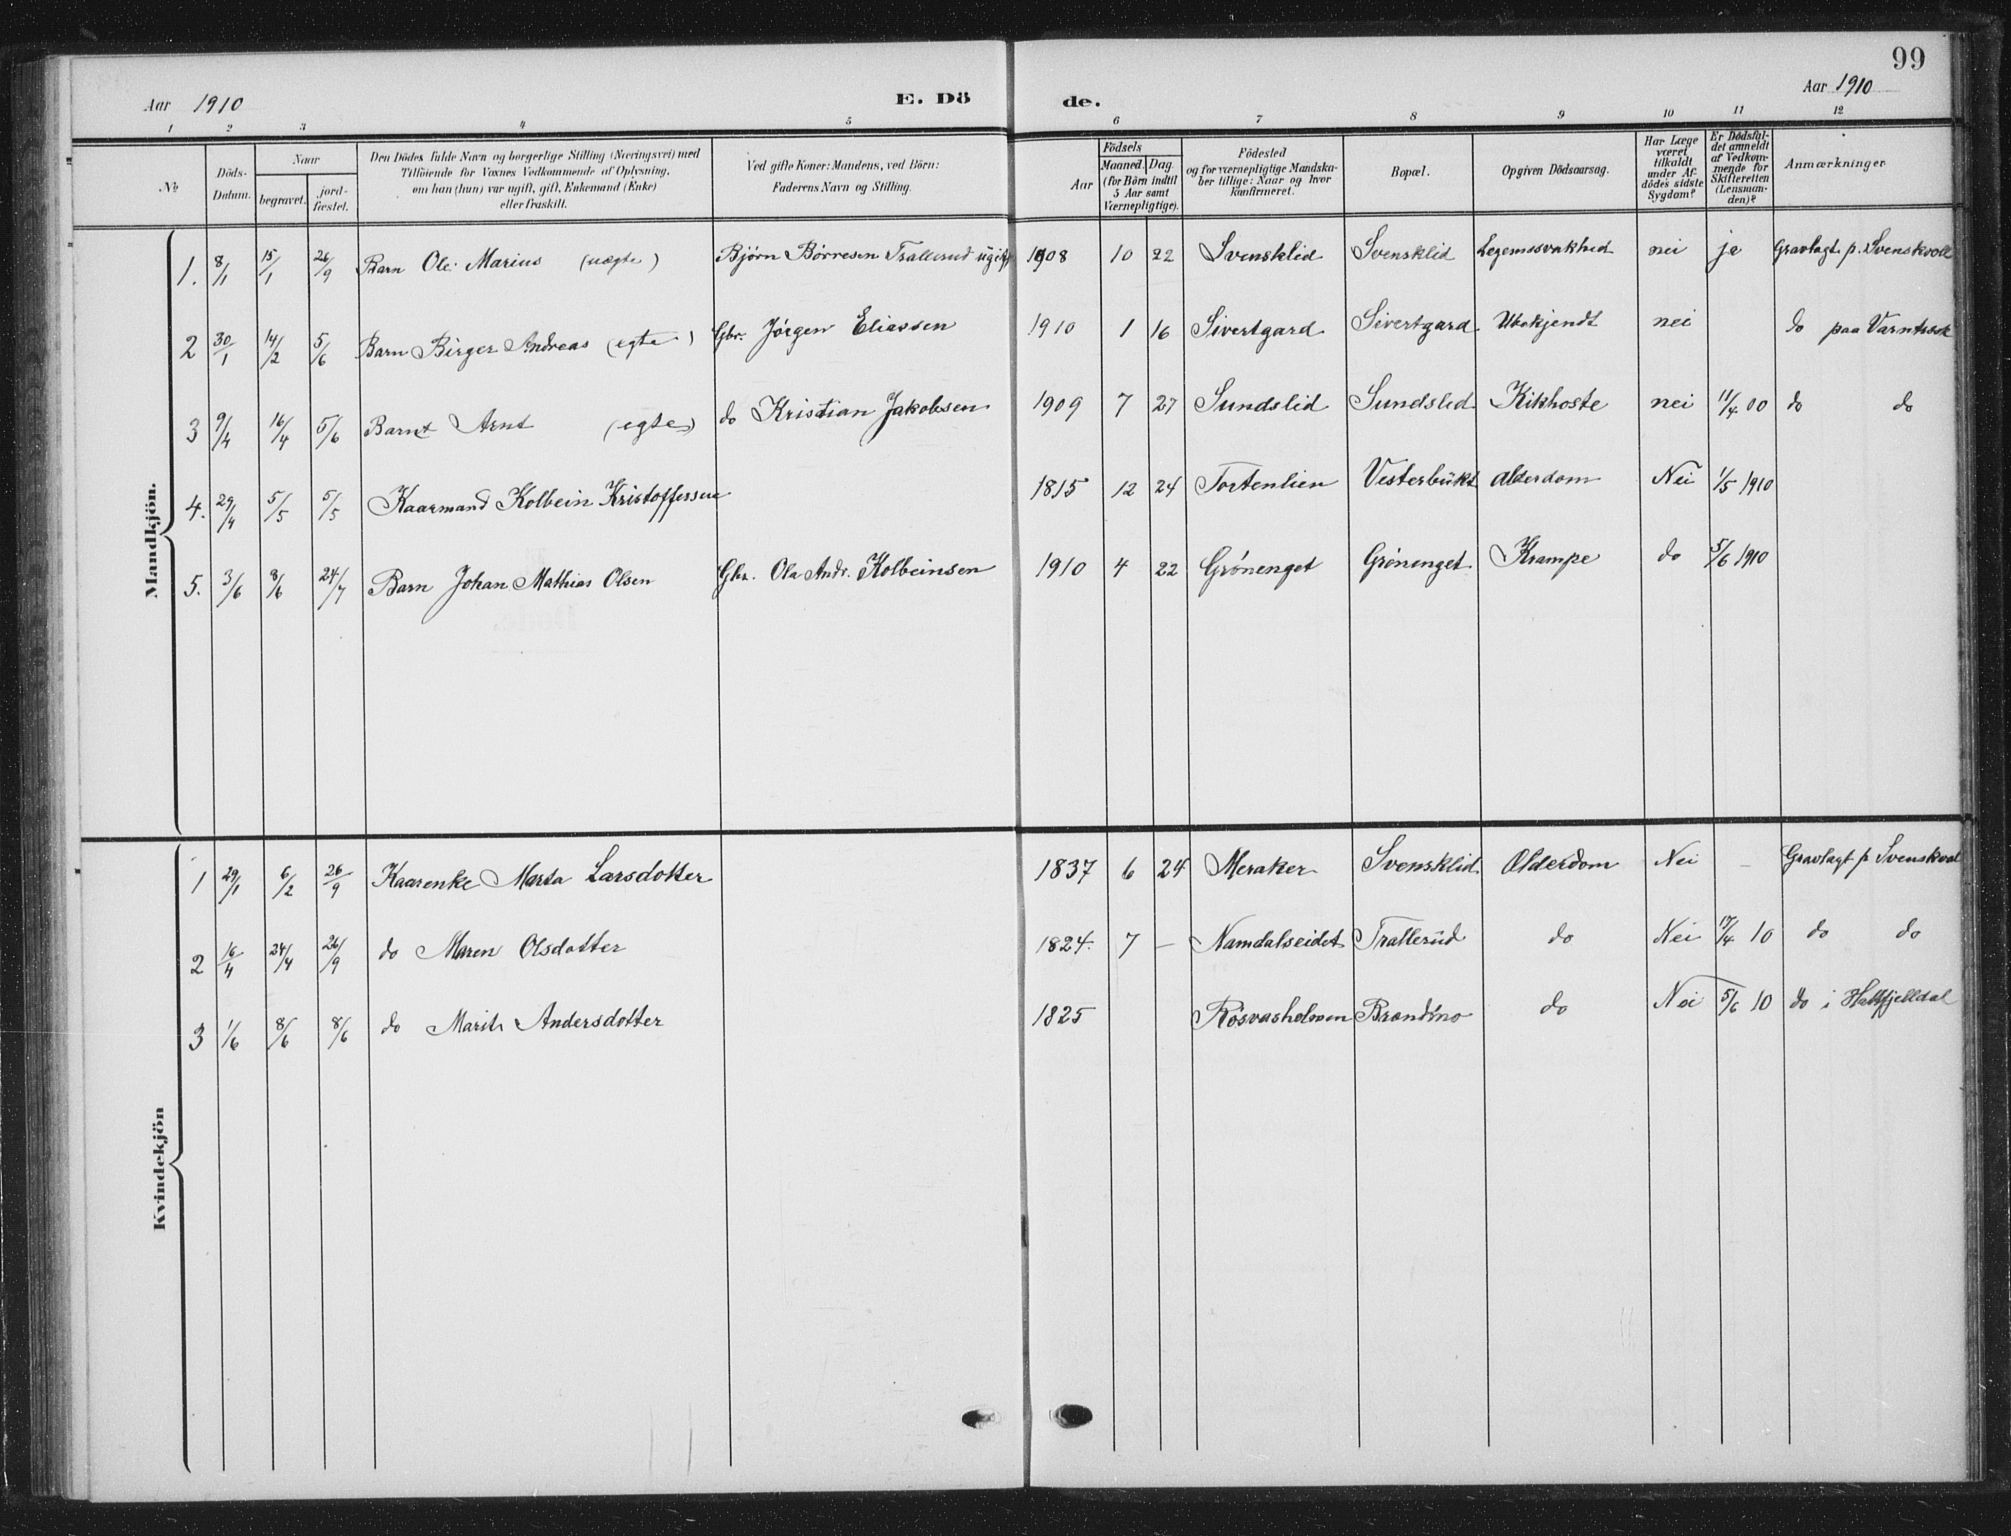 99
Aar 1910 E. Dö de. Aar 1910
1 2 3 4 5 6 7 8 9 10 11 12
№ Döds-Datum. Naar begravet. jord-fæstet. Den Dödes fulde Navn og borgerlige Stilling (Næringsvei) med Tilföiende for Voxnes Vedkommende af Oplysning, om han (hun) var ugift, gift, Enkemand (Enke) eller fraskilt. Ved gifte Koner: Mandens, ved Börn: Faderens Navn og Stilling. Födsels Aar Maaned. Dag. (for Börn indtil 5 Aar samt Værnepligtige). Födested og for værnepligtige Mandskaber tillige: Naar og hvor konfirmeret. Bopæl. Opgiven Dödsaarsag. Har Læge været tilkaldt under Afdödes sidste Sygdom? Er Dödsfaldet anmeldt af Vedkommende for Skifteretten (Lensmanden)? Anmærkninger
Mandkjön.
1. 8/1 15/1 26/9 Barn Ole Marius (uægte) Bjørn Børresen Trallerud ugift 1908 10 22 Svensklid Svensklid Legemssvakhed nei ja Gravlagt p. Svenskvoll
2 30/1 14/2 5/6 Barn Birger Andreas (egte) Gbr. Jørgen Eliassen 1910 1 16 Sivertgard Sivertgard Ubekjendt nei do paa Varntresk
3 9/4 16/4 5/6 Barnet Arnt (egte) do Kristian Jakobsen 1909 7 27 Sundslid Sundslid Kikhoste nei 11/4 00 do do
4. 29/4 5/5 5/5 Kaarmand Kolbein Kristoffersen 1815 12 24 Tortenlien Vesterbukt Alderdom Nei 1/5 1910
5. 3/6 8/6 24/7 Barn Johan Mathias Olsen Gbr. Ola Andr. Kolbeinsen 1910 4 22 Grønenget Grønenget Krampe do 5/6 1910
Kvindekjön
1 29/1 6/2 26/9 Kaarenke Marta Larsdotter 1837 6 24 Meraker Svensklid Olderdom Nei – Gravlagt p Svenskvol
2 16/4 24/4 26/9 do Maren Olsdotter 1824. 7 – Namdalseidet Trallerud do Nei 17/4 10 do do
3 1/6 8/6 8/6 do Marit Andersdotter 1825 Røsvasholmen Brændmo do Nei 5/6 10 do i Hatfjelldal